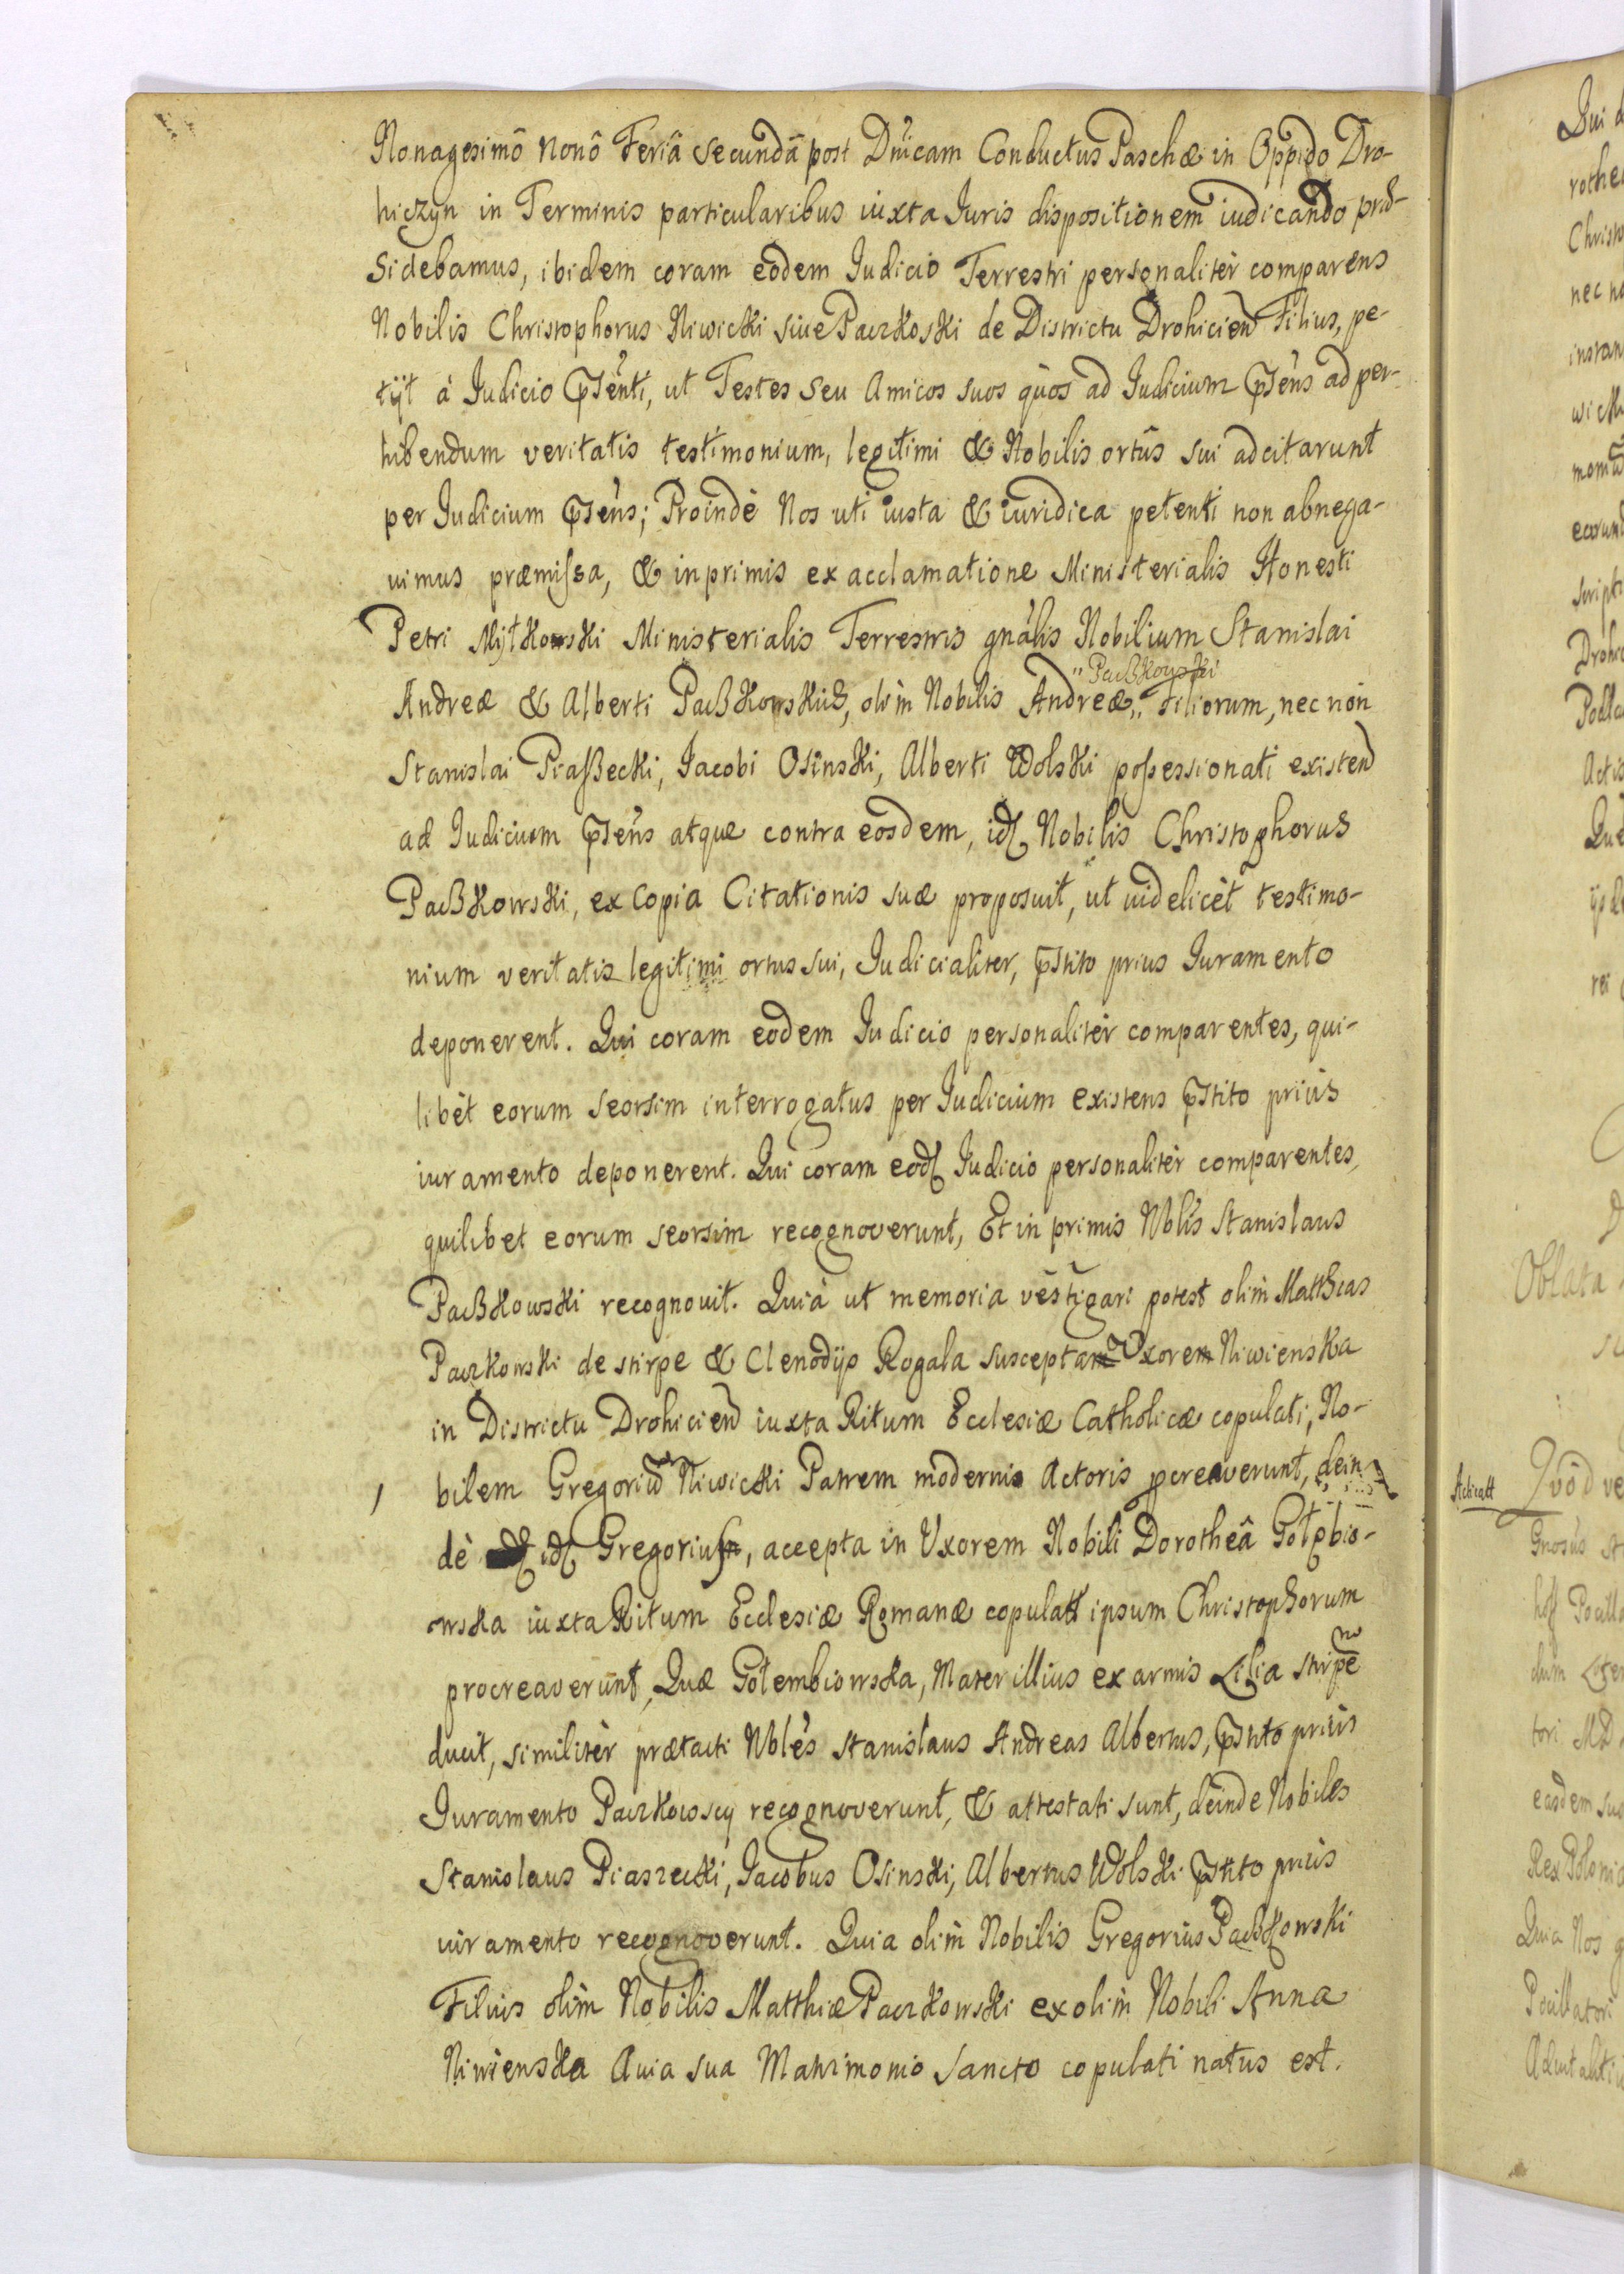 Nonagesimô Nonô Feriâ Secundâ post Dnicam Conductus Paschæ in Oppido Dro-
hiczyn in Terminis particularibus iuxta Iuris dispositionem iudicando præ-
Sidebamus, ibidem coram eodem Iudicio Terrestri personalitèr comparens
Nobilis Christophorus Niwicki siue Paczkoski de Districtu Drohicien Filius, pe-
tijt à Iudicio pnsenti, ut Testes seu Amicos suos quos ad Iudicium pnsens ad per-
hibendum veritatis testimonium, legitimi & Nobilis ortûs sui adcitarunt
per Iudicium pnsens; Proindè Nos uti iusta & iuridica petenti non abnega-
uimus præmissa, & inprimis ex acclamatione Ministerialis Honesti
Petri Miłkowski Ministerialis Terrestris gnalis Nobilium Stanislai
"Paczkowski
Andreæ & Alberti Paczkowskich, olim Nobilis Andreæ,, Filiorum, nec non
Stanislai Piaßecki, Iacobi Osinski, Alberti Wolski possessionati existend
ad Iudicium pnsens atque contra eosdem, id Nobilis Christophorus
Paczkowski, ex Copia Citationis suæ proposuit, ut uidelicèt testimo-
nium veritatis legitimi ortus sui, Iudicialiter, pstito prius Iuramento
deponerent. Qui coram eodem Iudicio personalitèr comparentes, qui-
libèt eorum seorsim interrogatus per Iudicium existens pstito priùs
iuramento deponerent. Qui coram eod Iudicio personalitèr comparentes,
quilibet eorum seorsim recognoverunt, Et in primis Nblis Stanislaus
Paczkowski recognouit. Quià ut memoria vestigari potest olim Matthias
Paczkowski de stirpe & Clenodijs Rogala suscepta Uxore Niwienska
in Districtu Drohiciend iuxta Ritum Ecclesiæ Catholicæ copulati, No-
bilem Gregoriũ Niwicki Patrem moderni Actoris pcreaverunt, dein
dè id Gregorius, accepta in Uxorem Nobili Dorotheâ Gołębio-
wska iuxta Ritum Ecclesiæ Romanæ copulati ipsum Christophorum
procreaverunt, Quæ Gołembiowska, Mater illius ex armis Lilia stirpẽ
ducit, similitèr prætacti Nbles Stanislaus Andreas Albertus, pstito priùs
Iuramento Paczkowscy recognoverunt, & attestati sunt, deinde Nobiles
Stanislaus Piaszecki, Iacobus Osinski, Albertus Wolski pstito priùs
iuramento recognoverunt. Quia olim Nobilis Gregorius Paczkowski
Filius olim Nobilis Matthiæ Paczkowski ex olim Nobili Anna
Niwienska Auia sua Matrimonio Sancto copulati natus est.
Acticatt
Oblata